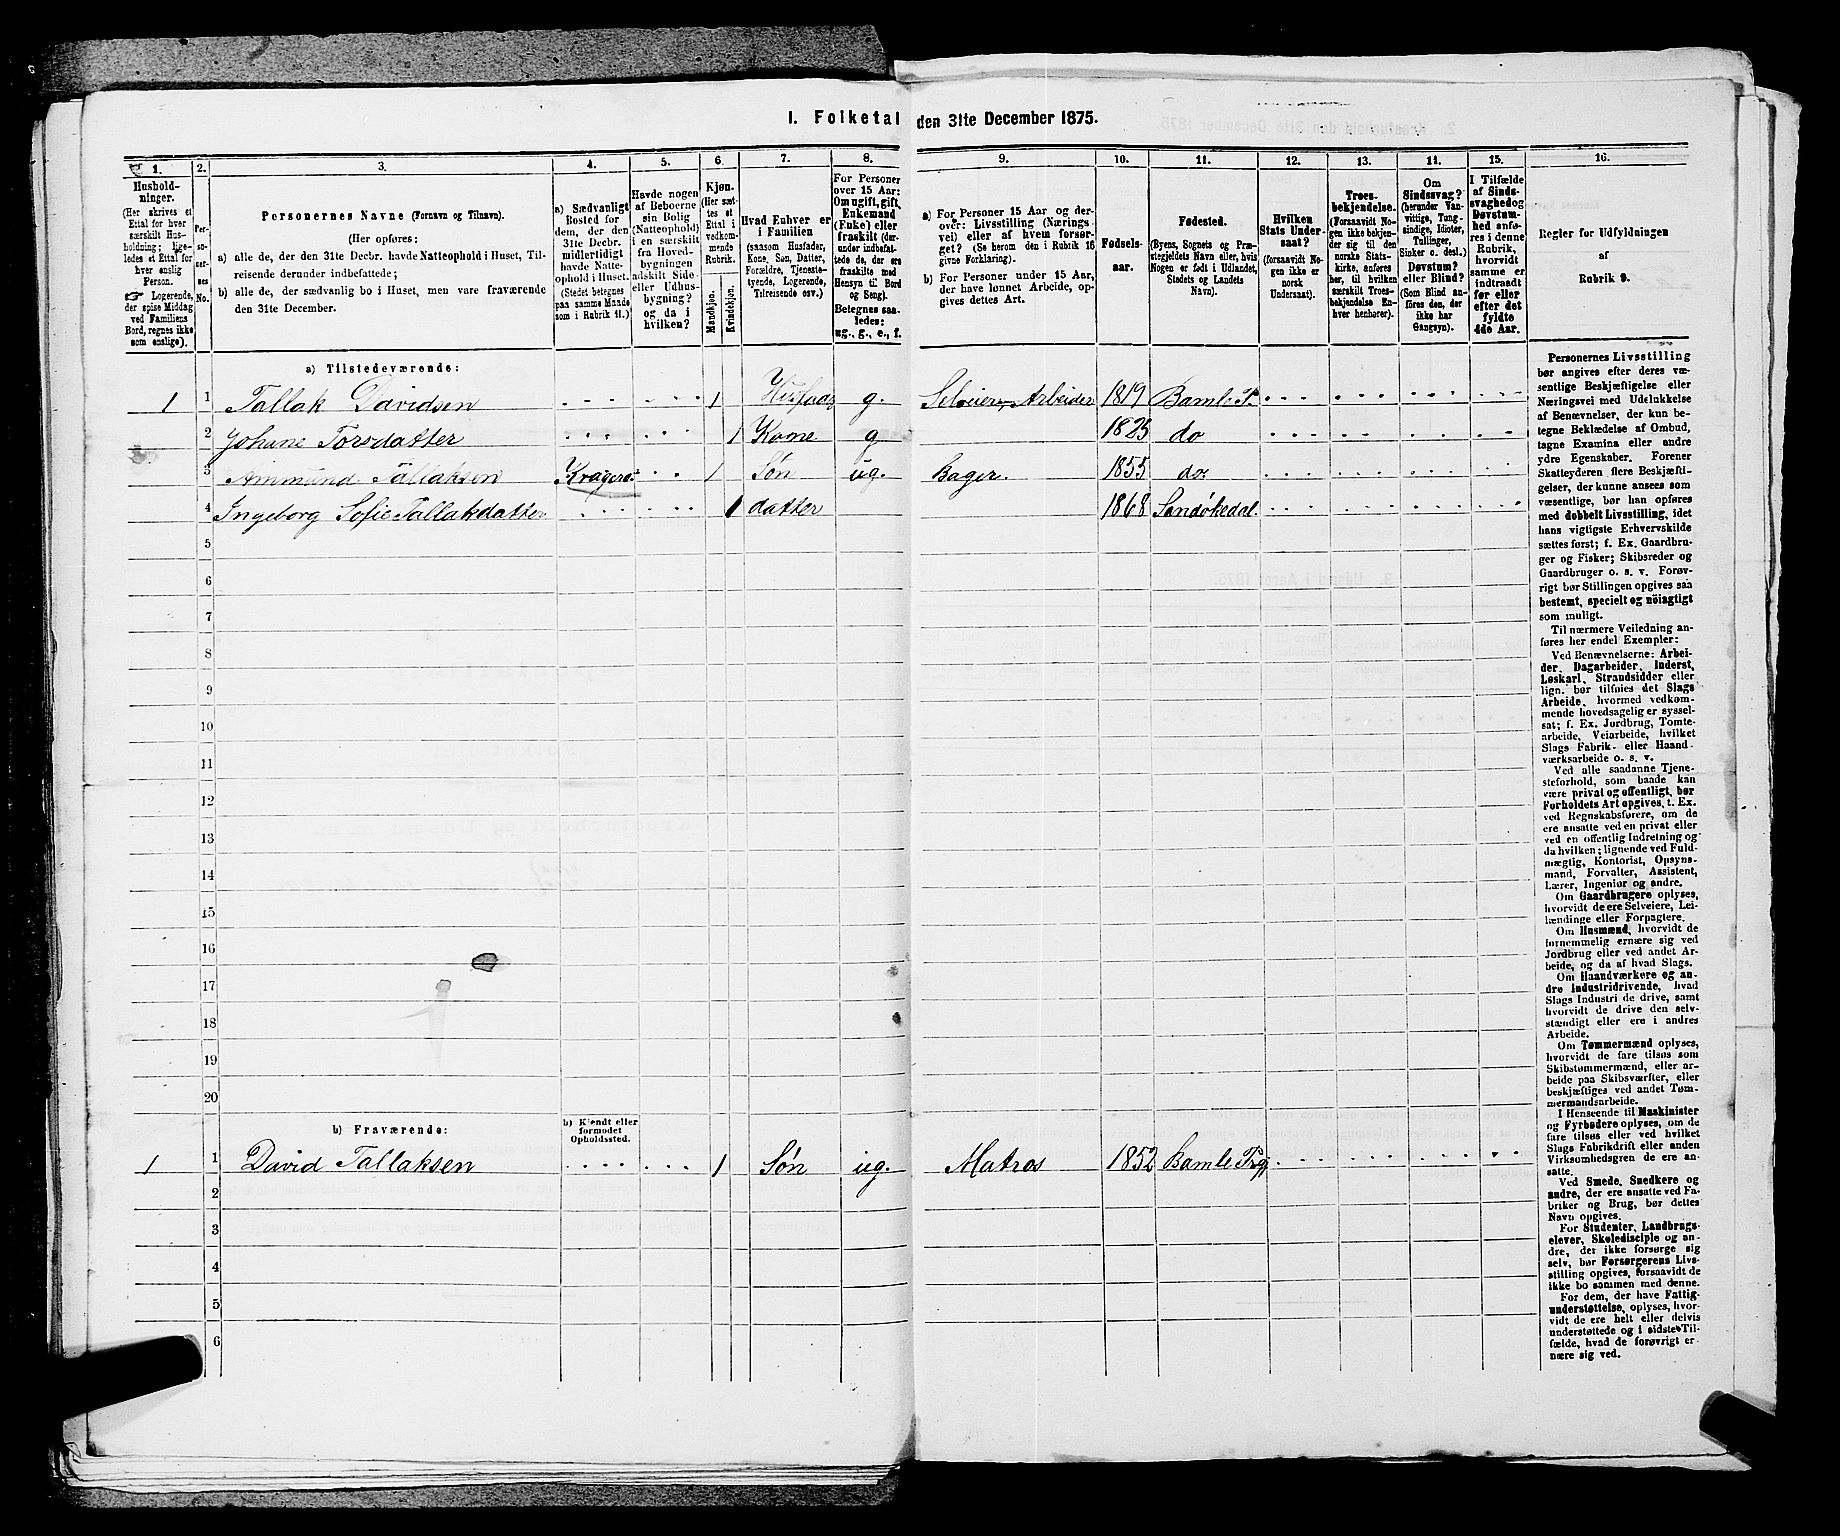 I. Folketal den 31te December 1875.
1. 2. 3. 4. 5. 6. 7. 8. 9. 10. 11. 12. 13. 14. 15. 16.
Hushold-
ninger.
(Her skrives et
Ettal for hver
særskilt Hus-
holdning; lige-
ledes et Ettal for
hver enslig
Person.
☞ Logerende,
der spise Middag
ved Familiens
Bord, regnes ikke
som enslige).
Per-
so-
ner-
nes
No.
Personernes Navne (Fornavn og Tilnavn).
(Her opføres:
a) alle de, der den 31te Decbr. havde Natteophold i Huset, Til-
reisende derunder indbefattede;
b) alle de, der sædvanlig bo i Huset, men vare fraværende
den 31te December.
a) Sædvanligt
Bosted for
dem, der den
31te Decbr.
midlertidigt
havde Natte-
ophold i Huset.
(Stedet betegnes
paa samme Maade
som i Rubrik 11.)
Havde nogen
af Beboerne
sin Bolig
(Natteophold)
i en særskilt
fra Hoved-
bygningen
adskilt Side-
eller Udhus-
bygning?
og da i
hvilken?
Kjøn.
(Her sæt-
tes et
Ettal i
vedkom-
mende
Rubrik.
Mandkjøn.
Kvindekjøn.
Hvad Enhver er
i Familien
(saasom Husfader,
Kone, Søn, Datter,
Forældre, Tjeneste-
tyende, Logerende,
Tilreisende osv.)
For Personer
over 15 Aar:
Om ugift, gift,
Enkemand
(Enke) eller
fraskilt (der-
under indbefat-
tede de, der ere
fraskilte med
Hensyn til Bord
og Seng).
Betegnes saa-
ledes:
ug., g., e., f.
a) For Personer 15 Aar og der-
over: Livsstilling (Nærings-
vei) eller af hvem forsør-
get? (Se herom den i Rubrik 16
givne Forklaring).
b) For Personer under 15 Aar,
der have lønnet Arbeide, op-
gives dettes Art.
Fødsels-
aar.
Fødested.
(Byens, Sognets og Præ-
stegjeldets Navn eller, hvis
Nogen er født i Udlandet,
Stedets og Landets
Navn).
Hvilken
Stats Under-
saat?
(forsaavidt No-
gen ikke er
norsk
Undersaat).
Troes-
bekjendelse.
(Forsaavidt No-
gen ikke bekjen-
der sig til den
norske Stats-
kirke, anføres
her, til hvilken
særskilt Troes-
bekjendelse En-
hver henhører).
Om
Sindssvag?
(herunder Van-
vittige, Tung-
sindige, Idioter,
Tullinger,
Sinker o. desl.).
Døvstum?
eller Blind?
(Som Blind an-
føres den, der
ikke har
Gangsyn).
I Tilfælde
af Sinds-
svaghed og
Døvstum-
hed anfø-
res i denne
Rubrik,
hvorvidt
samme er
indtraadt
før eller
efter det
fyldte
4de Aar.
Regler for Udfyldningen
af
Rubrik 9.
a) Tilstedeværende:
1 1 Tallak Davidsen 1 Husfader g. Selveier, Arbeider 1819 Bamle P.
2 Johane Torsdatter 1 Kone g 1825 do
3 Ammund Tallaksen Kragerø 1 Søn ug. Bager. 1855 do.
4 Ingeborg Sofie Tallakdatter 1 datter 1868 Sandøkedal.
5
6
7
8
9
10
11
12
13
14
15
16
17
18
19
20
b) Fraværende:
b) Kjendt eller
formodet
Opholdssted.
1 1 David Tallaksen 1 Søn ug. Matros 1852 Bamle Prgj.
2
3
4
5
6
Personernes Livsstilling
bør angives efter deres væ-
sentlige Beskjæftigelse eller
Næringsvei med Udelukkelse
af Benævnelser, der kun be-
tegne Beklædelse af Ombud,
tagne Examina eller andre
ydre Egenskaber. Forener
Skatteyderen flere Beskjæfti-
gelser, der kunne ansees som
væsentlige, bør han opføres
med dobbelt Livsstilling, idet
hans vigtigste Erhvervskilde
sættes først; f. Ex. Gaardbru-
ger og Fisker; Skibsreder og
Gaardbruger o. s. v. Forøv-
rigt bør Stillingen opgives saa
bestemt, specielt og nöiagtigt
som muligt.
Til nærmere Veiledning an-
føres her endel Exempler:
Ved Benævnelserne: Arbei-
der, Dagarbeider, Inderst,
Løskarl, Strandsidder eller
lign. bør tilføies det Slags
Arbeide, hvormed vedkom-
mende hovedsagelig er syssel-
sat; f. Ex. Jordbrug, Tomte-
arbeide, Veiarbeide, hvilket
Slags Fabrik- eller Haand-
værksarbeide o. s. v.
Ved alle saadanne Tjene-
steforhold, som baade kan
være privat og offentligt, bør
Forholdets Art opgives, t. Ex.
ved Regnskabsførere, om de
ere ansatte ved en privat eller
ved en offentlig Indretning og
da hvilken; lignende ved Fuld-
mægtig, Kontorist, Opsyns-
mand, Forvalter, Assistent,
Lærer, Ingeniør og andre.
Om Gaardbrugere oplyses,
hvorvidt de ere Selveiere, Lei-
lændinge eller Forpagtere.
Om Husmænd, hvorvidt de
fornemmelig ernære sig ved
Jordbrug eller ved andet Ar-
beide, og da af hvad Slags.
Om Haandværkere og an-
dre Industridrivende, hvad
Slags Industri de drive, samt
hvorvidt de drive den selv-
stændigt eller ere i andres
Arbeide.
Om Tømmermænd oplyses,
hvorvidt de fare tilsøs som
Skibstømmermænd, eller ar-
beide paa Skibsværfter, eller
beskjæftiges ved andet Tøm-
mermandsarbeide.
I Henseende til Maskinister
og Fyrbødere oplyses, om de
fare tilsøs eller ved hvilket
Slags Fabrikdrift eller anden
Virksomhedsgren de ere an-
satte.
Ved Smede, Snedkere og
andre, der ere ansatte ved Fa-
briker og Brug, bør dettes
Navn opgives.
For Studenter, Landbrugs-
elever, Skoledisciple og an-
dre, der ikke forsørge sig
selv, bør Forsørgerens Livs-
stilling opgives, forsaavidt de
ikke bo sammen med denne.
For dem, der have Fattig-
understøttelse, oplyses, hvor-
vidt de ere helt eller delvis
understøttede og i sidste Til-
fælde, hvad de forøvrigt er-
nære sig ved.